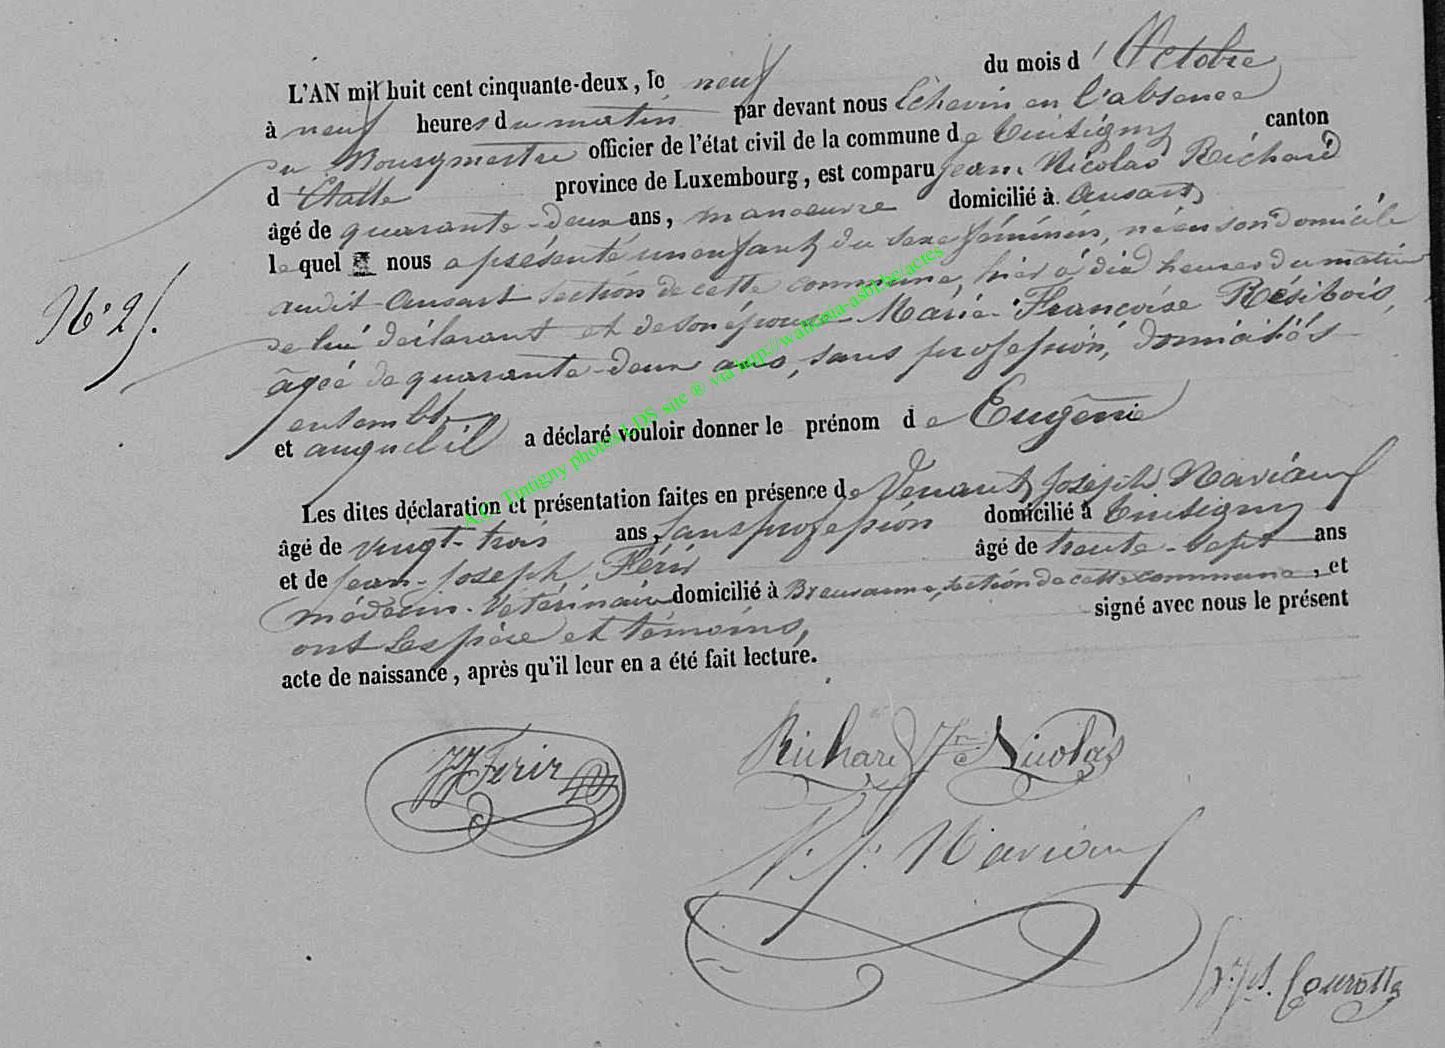 L'AN mil huit cent cinquante-deux, le neuf du mois d'Octobre
à neuf heures du matin par devant nous Echevin en l'absence
du Bourgmestre officier de l'état civil de la commune de Tintigny canton
d'Etalle province de Luxembourg, est comparu Jean Nicolas Richard
âgé de quarante-deux ans, manoeuvre domicilié à Ansart,
lequel nous a présenté un enfant du sexe féminin, né en son domicile
N° 25.
audit Ansart section de cette commune, hier à dix heures du matin
de lui déclarant et de son épouse Marie-Françoise Résibois,
âgée de quarante-deux ans, sans profession, domiciliés
ensemble
et auquel il a déclaré vouloir donner le prénom de Eugénie
Les dites déclaration et présentation faites en présence de Venant Joseph
âgé de vingt-trois ans, sans profession domicilié à Tintigny
et de Jean-Joseph Férir âgé de trente-sept ans
médecin-Vétérinaire domicilié à Breuvanne, section de cette commune, et
ont les père et témoins, signé avec nous le présent
acte de naissance, après qu'il leur en a été fait lecture.
JJ Ferir
Richard Jn Nicolas
A.C. Tintigny photos LDS site ® via http://wallonia-asbl.be/actes